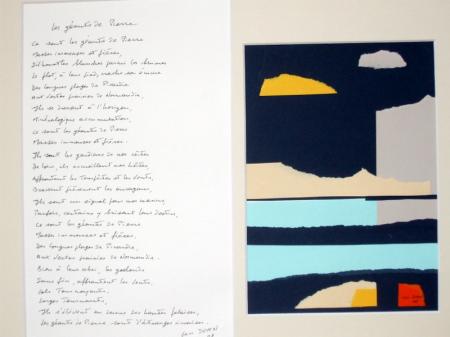 Les géants de Pierre
Ce sont les géants de Pierre
Masses immenses et fières,
Silhouettes blanches parmi les brumes
Le flot, à leur pied,
Des longues plages de Picardie
Aux vertes prairies de Normandie,
Ils se dressent à l'horizon,
Minéralogique accumulation,
Ce sont les géants de Pierre
Masses immenses et fières.
Ils sont les gardiens de nos côtes
De loin, ils accueillent nos hôtes
Affrontent les Tempêtes et les vents,
Bravent fièrement les ouragans,
Ils sont un signal pour nos marins,
Parfois, certains y brisent leur destin,
Ce sont les géants de Pierre
Masses immenses et fières.
Des longues plages de Picardie,
Aux vertes prairies de Normandie.
Blocs à leur, les goélands
Sans fin, affrontent les vents,
Vols Tournoyants,
Larges Tournants,
Ils s'élèvent au dessus des hautes falaises,
Les géants de Pierre sont d'étranges